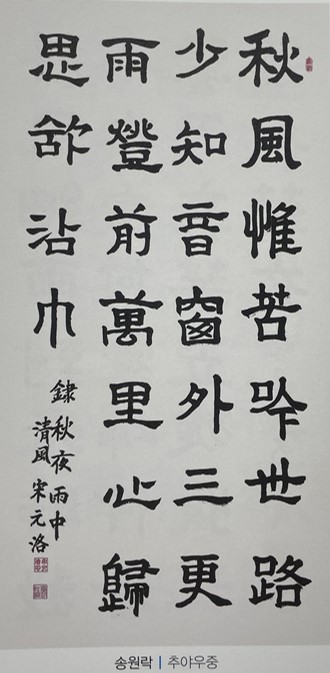 秋風惟苦吟世路
少知音窗外三更
雨燈前萬里心歸
思欲沾巾
錄秋夜雨中
清風 宋元洛
송원락 | 추야우중